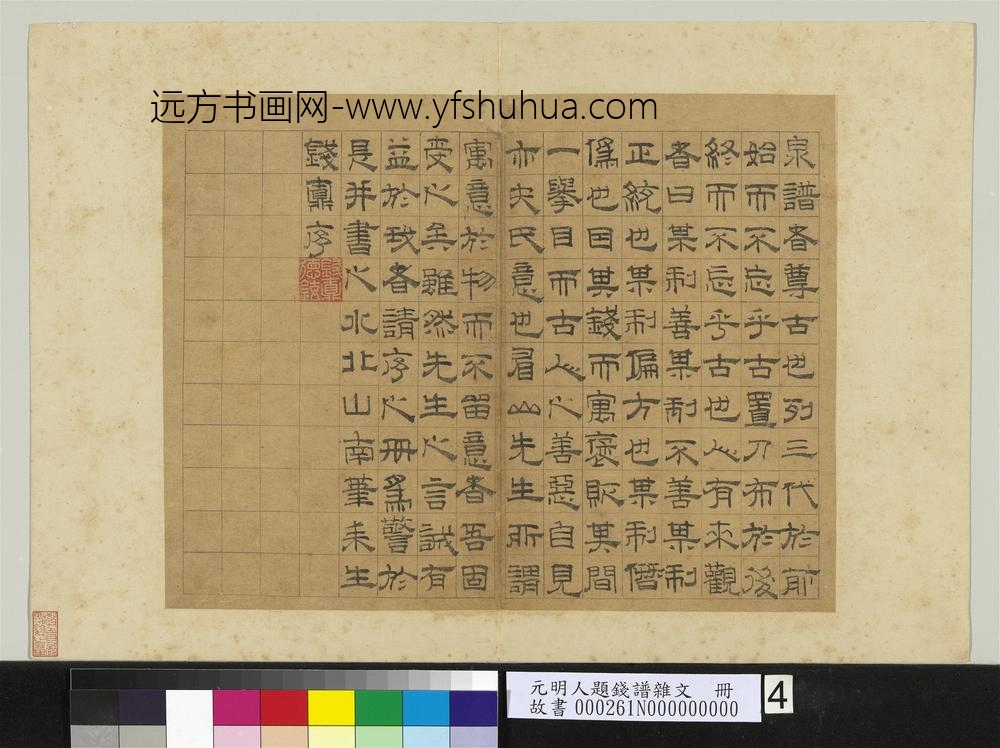 远方书画网-www.yfshuhua.com
泉譜者尊古也列三代於前
始而不忘乎古置刀布於後
終而不忘乎古也人有來觀
者曰某制善某制不善某制
正統也某制偏方也某制僭
偽也因其錢而寓褒貶其間
一舉目而古人之善惡自見
亦史氏意也眉山先生所謂
寓意於物而不留意者吾固
受之矣雖然先生之言誠有
益於我者請序之冊為警於
是并書之水北山南筆耒生
錢鼒序
元明人題錢譜雜文 冊
故書000261N000000000
4